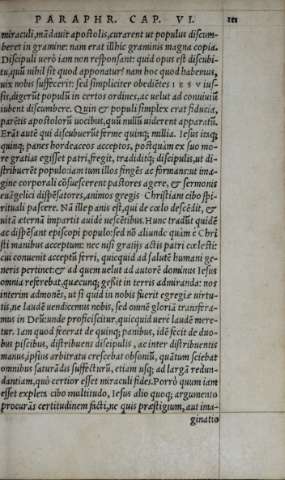 PARAPHR. CAP. VI. 121
miraculi, mãdauit apostolis, curarent ut populus discum-
beret in gramine: nam erat illhic graminis magna copia.
Discipuli uerò iam non respõsant: quid opus est discubi-
tu, quũ nihil sit quod apponatur? nam hoc quod habemus,
uix nobis suffecerit: sed simpliciter obediẽtes iesv ius-
sis, digerũt populũ in certos ordines, ac uelut ad conuiuiũ
iubent discumbere. Quin & populi simplex erat fiducia,
parẽtis apostolorũ uocibus, quũ nullũ uiderent apparatũ.
Erãt autẽ qui discubuerũt ferme quinq; millia. Iesus itaq;
quinq; panes hordeaceos acceptos, postquàm ex suo mo-
re gratias egisset patri, fregit, tradiditq; discipulis, ut di-
stribuerẽt populo: iam tum illos fingẽs ac firmans: ut ima-
gine corporali cõsuescerent pastores agere, & sermonis
euãgelici dispẽsatores, animos gregis Christiani cibo spi-
rituali pascere. Nã ille panis est, qui de cœlo descẽdit, &
uitã æternã impartit auide uescẽtibus. Hunc tradũt quidẽ
ac dispẽsant episcopi populo: sed nõ aliunde quàm è Chri
sti manibus acceptum: nec nisi gratijs actis patri cœlesti:
cui conuenit acceptũ ferri, quicquid ad salutẽ humani ge-
neris pertinet: & ad quem uelut ad autorẽ dominus Iesus
omnia referebat, quæcunq; gessit in terris admiranda: nos
interim admonẽs, ut si quid in nobis fuerit egregiæ uirtu-
tis, ne laudẽ uendicemus nobis, sed omnẽ gloriã transfera-
mus in Deũ: unde proficiscitur, quicquid uerè laudẽ mere-
tur. Iam quod fecerat de quinq; panibus, idẽ fecit de duo-
bus piscibus, distribuens discipulis, ac inter distribuentis
manus, ipsius arbitratu crescebat obsoniũ, quãtum sciebat
omnibus saturãdis suffecturũ, etiam usq; ad largã redun-
dantiam, quò certior esset miraculi fides. Porrò quum iam
esset expleta cibo multitudo, Iesus alio quoq; argumento
procurãs certitudinem facti, ne quis præstigium, aut ima-
ginatio